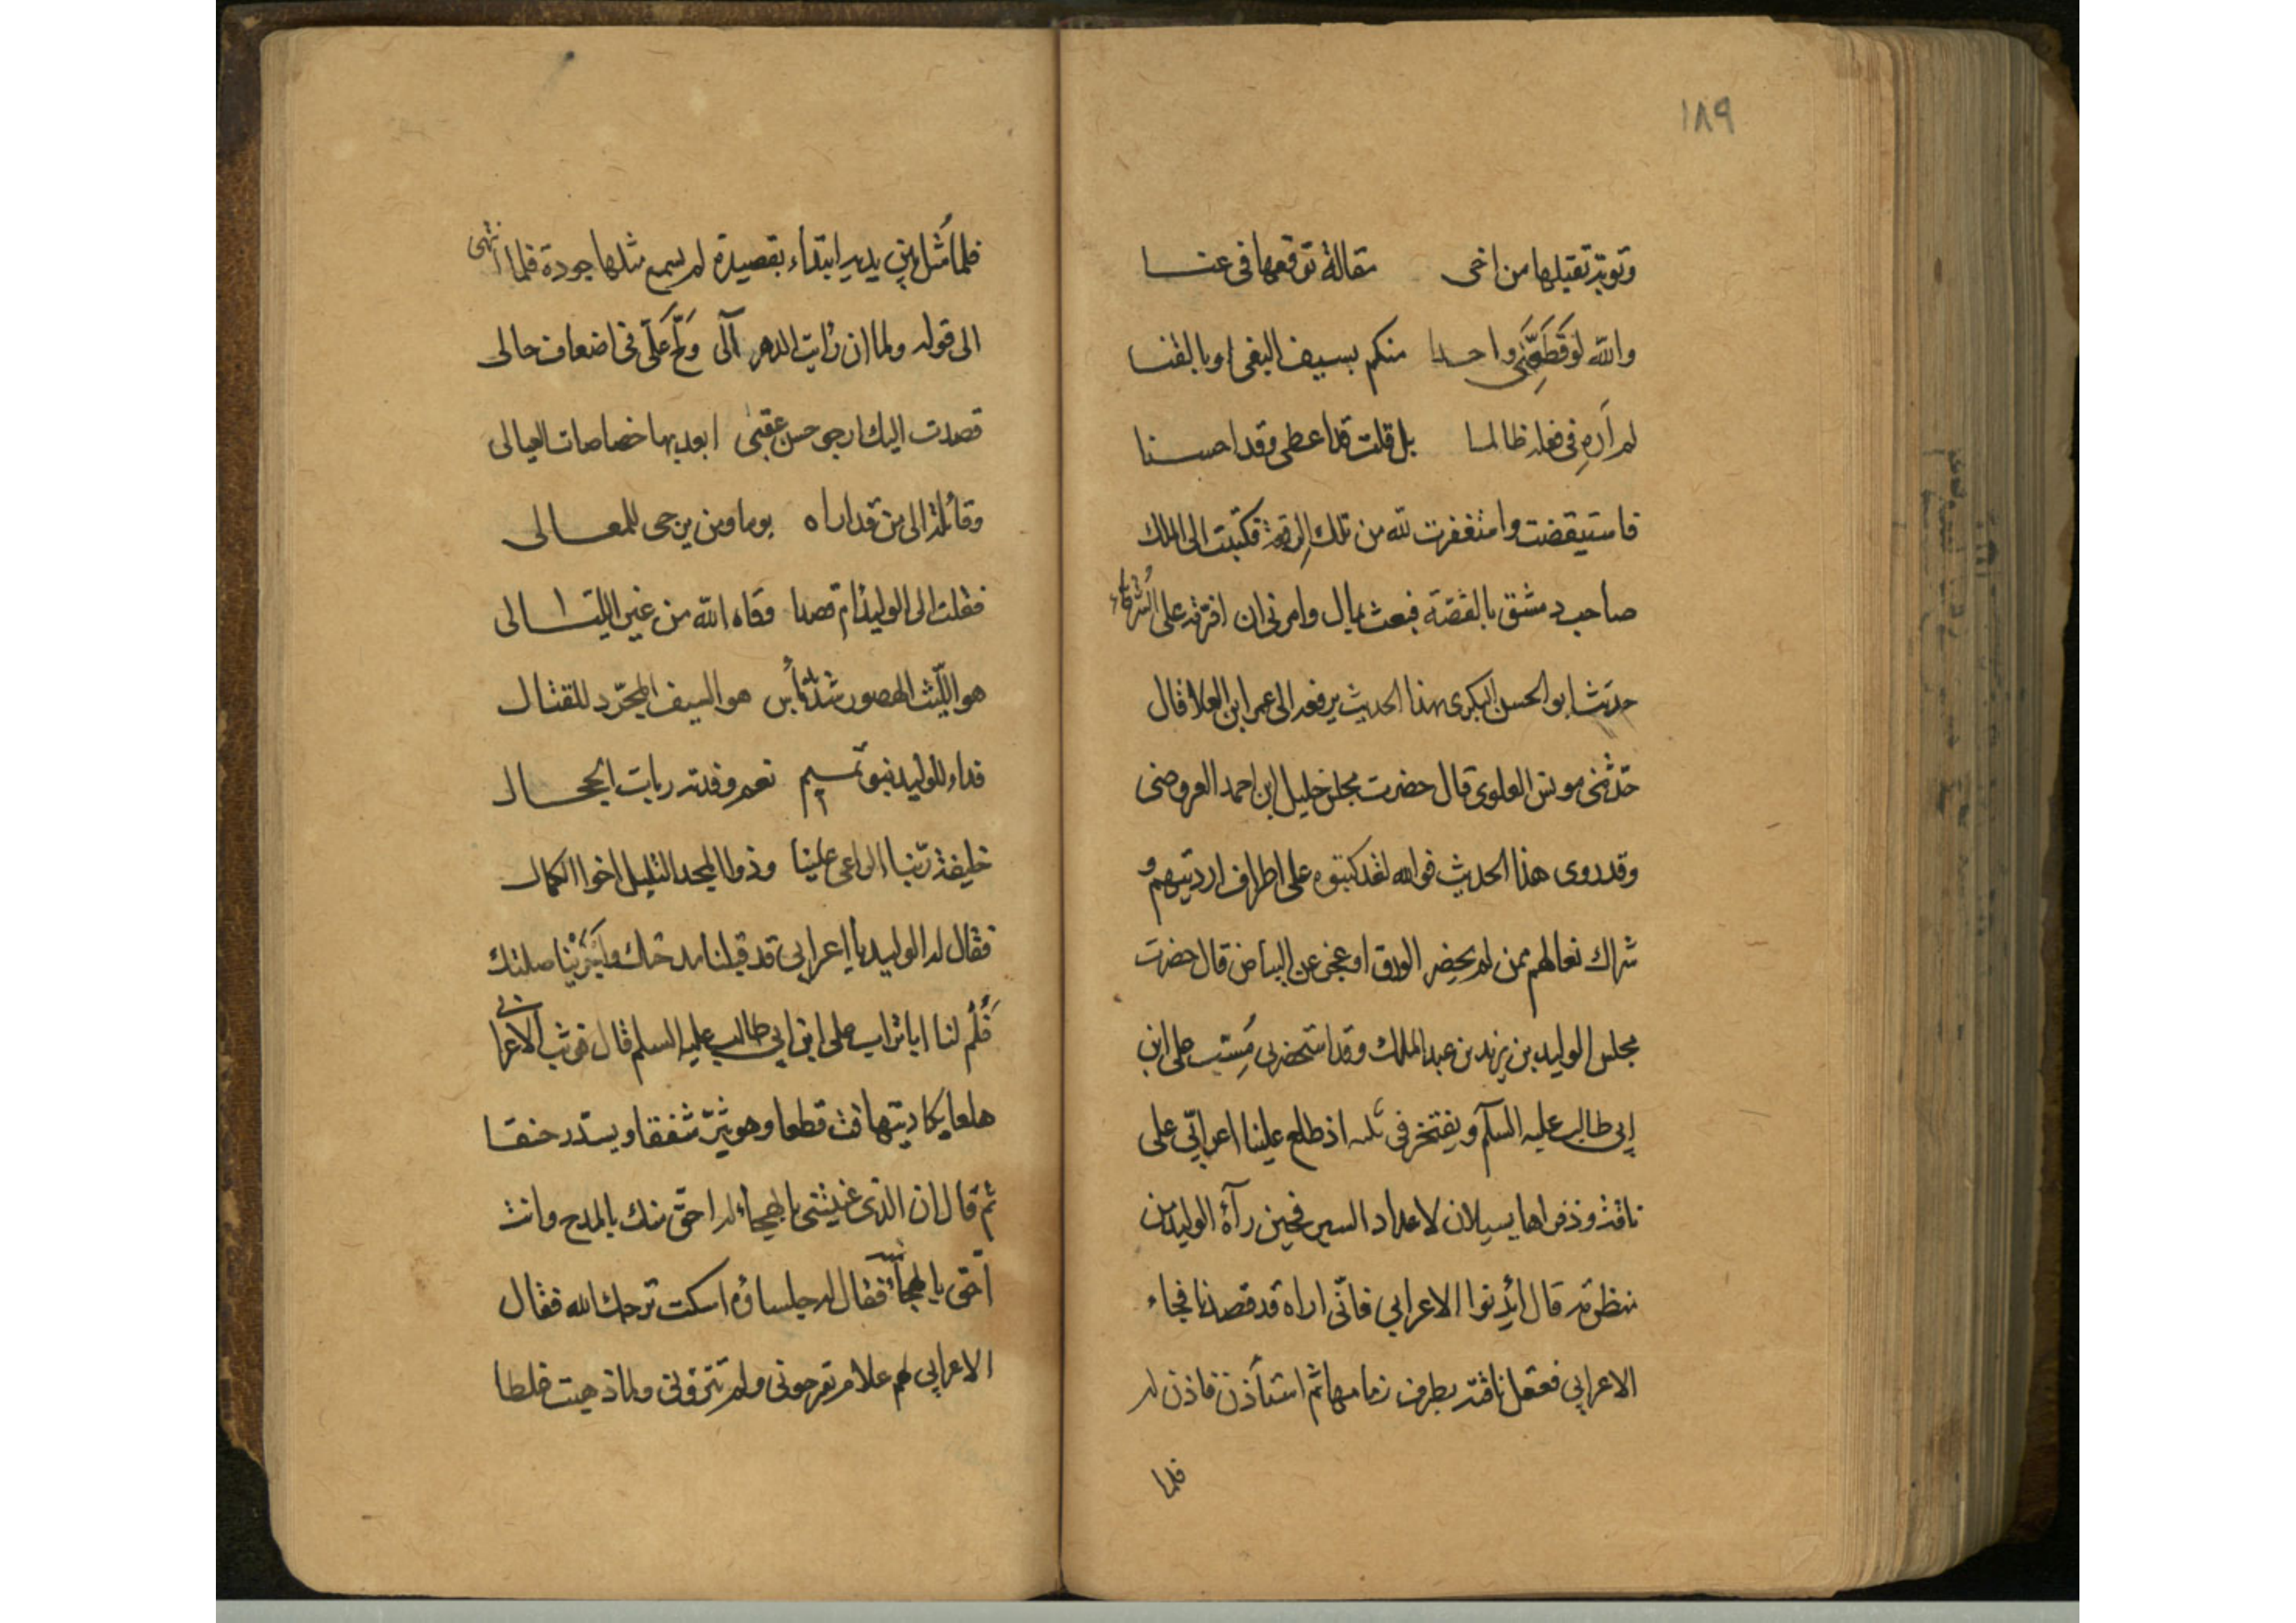 ١٨٩
وتوبة تقبلها من اخى مقالة توقعها فى عنا
والله لو قطعنى واحدا منكم بسيف البغى او بالقنا
لم اره فى فعله ظالما بل قلت قد اعطى وقد احسنا
فاستيقضت واستغفرت لله من تلك فكتبت الى الملك
صاحب دمشق بالقصّة فبعث بمال وامرنى ان افرّقه على الشرفاء
حدّث ابو الحسن البكرى هذا الحديث يرفعه الى عمر ابن العلا قال
حدّثنى مونس العلوى قال حضرت مجلس خليل ابن احمد العروضى
وقد روى هذا الحديث فوالله لقد كتبوه على اطراف ارديتهم و
شراك نعالهم ممن لم يحضر الورق او عجز عن البياض قال حضرت
مجلس الوليد بن يزيد بن عبد الملك وقد استحضر بى على ابن
ابى طالب عليه السلام ويفتخر فى اذ طلع علينا اعرابّي على
ناقة وذفراها يسيلان لاعداد السير فحين رآه الوليد من
منظرته قال ائذنوا الاعرابي فانّى اراه قد قصدنا فجاء
الاعرابي فعقل ناقته بطرف زمامها ثم استأذن فاذن له
فلما
فلما مُثل بين يديه ابتداء بقصيدة لم يسمع مثلها جودة فلما انتهى
الى قوله ولما ان رايت الدهر آلى علىّ فى اضعاف حالى
قصدت اليك ارجو حسن عقبى ابعد بها خصاصات العيالى
وقائلة الى من قد اراه يوما ومن يرجى للمعالى
فقلت الى الوليد أم قصدا وقاه الله من غير الليالى
هو الليث الهصور شديد بأس هو السيف المجرّد للقتال
فداء للوليد بنو تميم نعم وفدته ربات الحجال
خليفة ربّنا الواعى علينا وذو المجد التليل اخو الكمال
فقال له الوليد يا اعرابى قد قبلنا مدحتك واجزينا صلتك
لنا ابا تراب على ابن ابى طالب عليه السلم قال فوثب الاعرابى
هلعا يكاد يتهافت قطعا وهو شفقا و حنقا
ثم قال ان الذى عنيتنى بالهجاء له احقّ منك بالمدح وانت
احقّ بالهجاء فقال له جلساؤه اسكت ترحك الله فقال
الاعرابي لهم علام ولم وما ذهبت غلطا